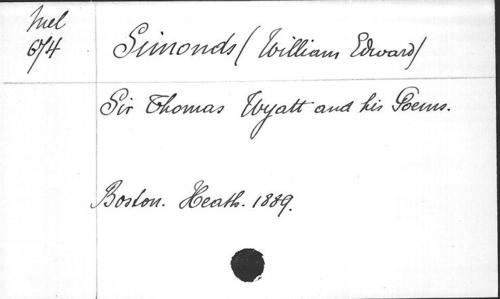 Mel
674
Simonds (William Edward)
Sir Thomas Wyatt and his Poems.
Boston. Heath. 1889.